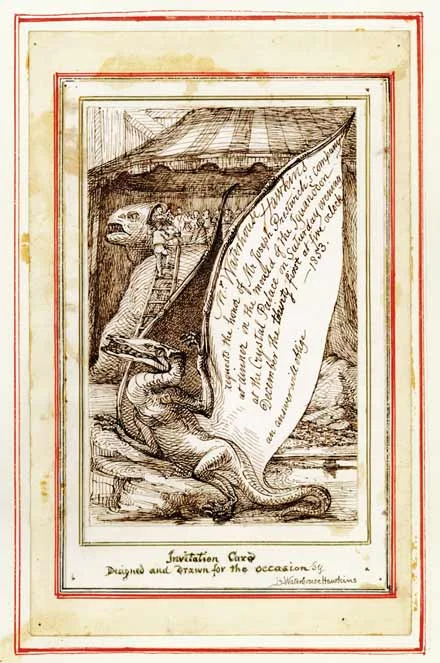 Mr Waterhouse Hawkins
requests the honor of Mr Joseph Prestwich's company
at dinner in the model of the Iguanodon
at the Crystal Palace on Saturday evening
December the thirty first at five o'clock
1853.
an answer will oblige
Invitation Card
Designed and drawn for the occasion by
B Waterhouse Hawkins